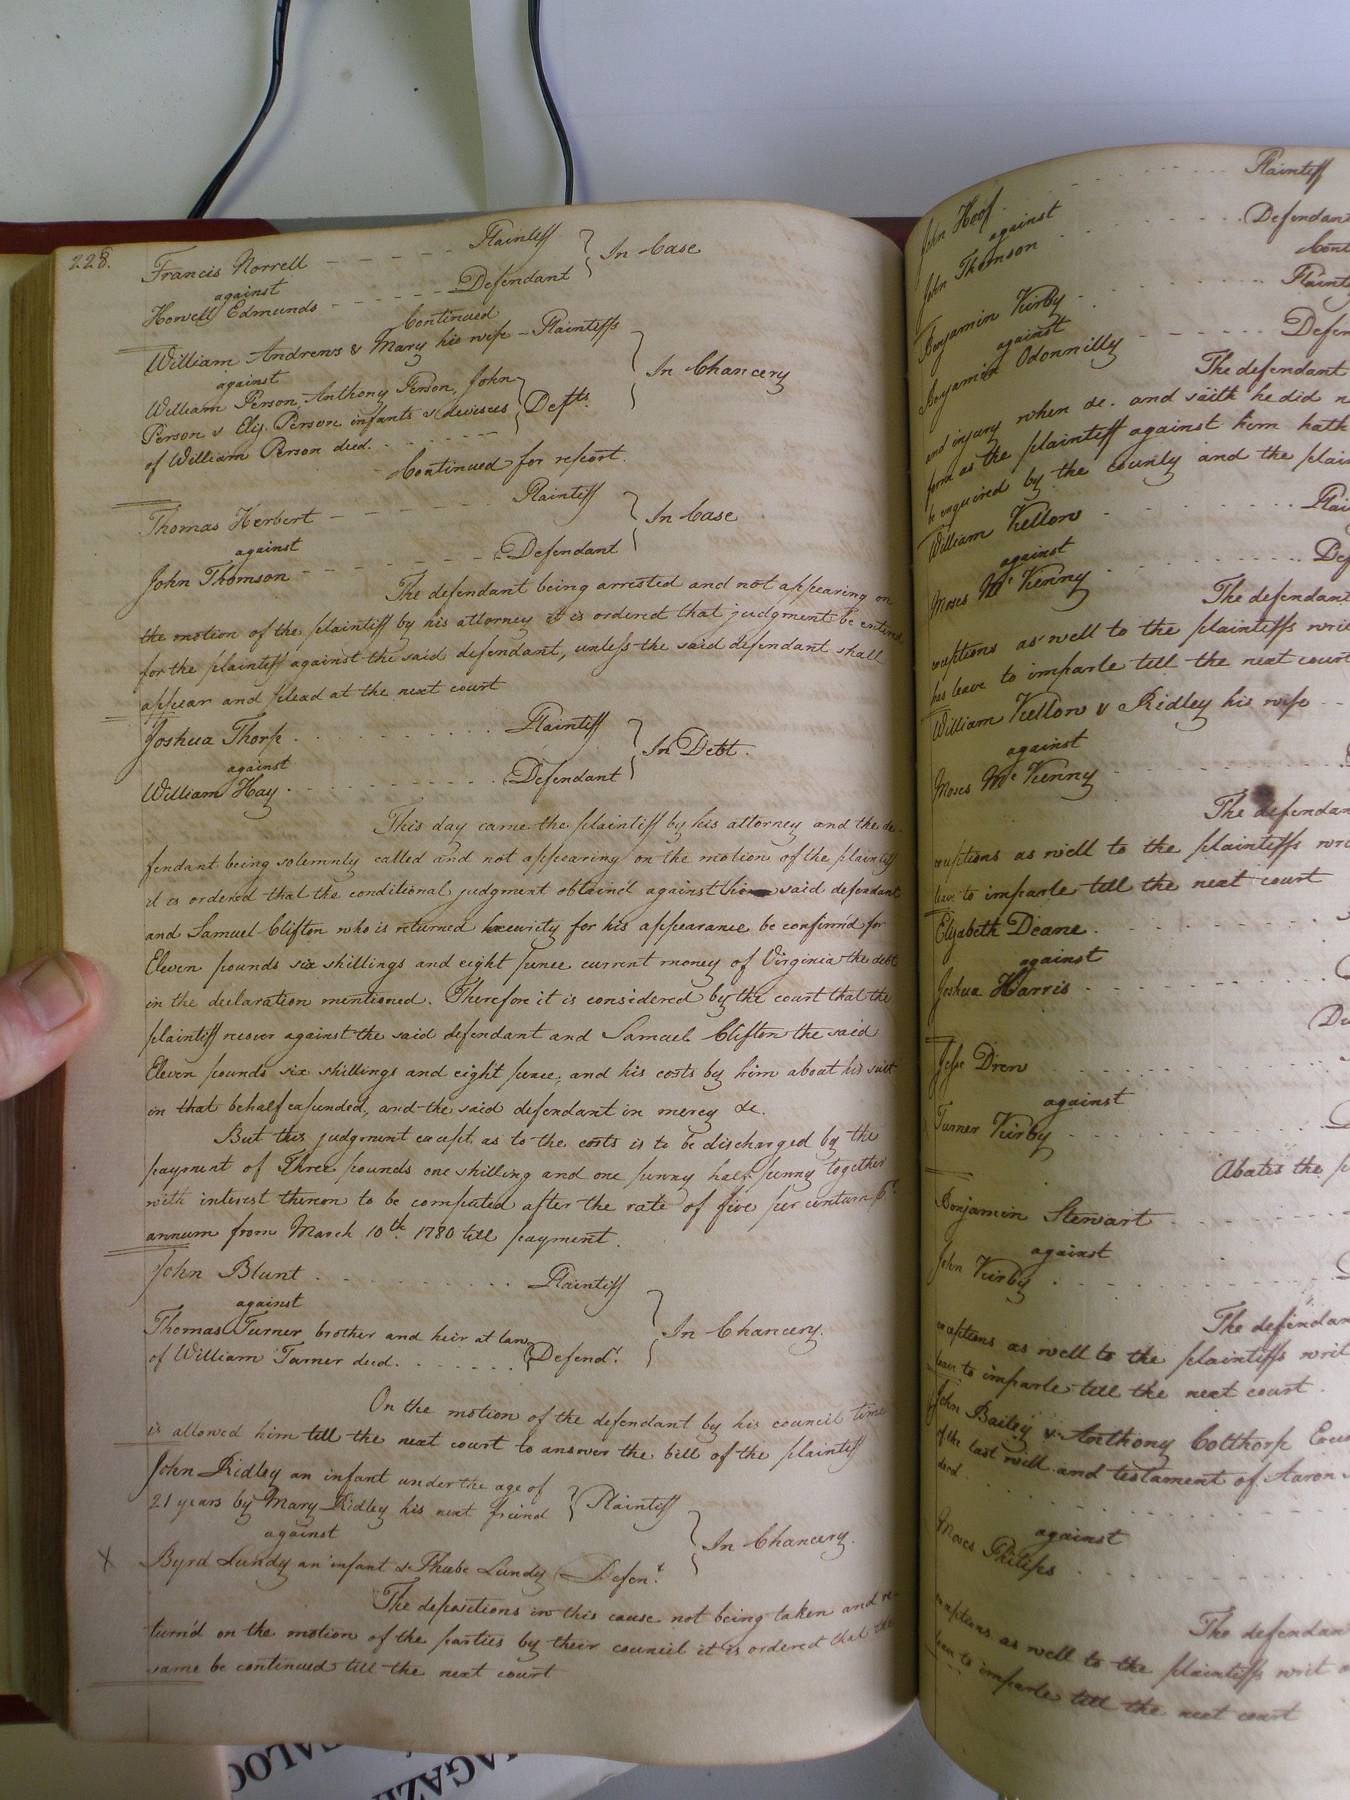 228.
Francis Norrell - - - - - - Plaintiff } In Case
against
Howell Edmunds - - - - - - Defendant
Continued
William Andrews & Mary his wife - Plaintiffs } In Chancery
against
William Person, Anthony Person, John
Person & Eliz. Person infants & devisees } Defts.
of William Person decd. - - - - - -
Continued for report.
Thomas Herbert - - - - - - Plaintiff } In Case
against
John Thomson - - - - - - Defendant
The defendant being arrested and not appearing on
the motion of the plaintiff by his attorney it is ordered that judgment be entered
for the plaintiff against the said defendant, unless the said defendant shall
appear and plead at the next court
Joshua Thorp . . . . . . . . . Plaintiff } In Debt.
against
William Hay . . . . . . . . . Defendant
This day came the plaintiff by his attorney and the de-
fendant being solemnly called and not appearing on the motion of the plaintiff
it is ordered that the conditional judgment obtained against said defendant
and Samuel Clifton who is returned security for his appearance be confirm'd for
Eleven pounds six shillings and eight pence current money of Virginia the debt
in the declaration mentioned. Therefore it is considered by the court that the
plaintiff recover against the said defendant and Samuel Clifton the said
Eleven pounds six shillings and eight pence, and his costs by him about his suit
in that behalf expended, and the said defendant in mercy &c.
But this judgment except as to the costs is to be discharged by the
payment of Three pounds one shilling and one penny half penny together
with interest thereon to be computed after the rate of five per centum pr.
annum from March 10th. 1780 till payment.
John Blunt . . . . . . . . . Plaintiff } In Chancery.
against
Thomas Turner, brother and heir at law
of William Turner decd. . . . . . . . } Defendt.
On the motion of the defendant by his council time
is allowed him till the next court to answer the bill of the plaintiff
John Ridley an infant under the age of
21 years by Mary Ridley his next freind } Plaintiff } In Chancery.
against
X Byrd Lundy an infant & Phœbe Lundy Defent.
The depositions in this cause not being taken and re-
turn'd on the motion of the parties by their council it is ordered that the
same be continued till the next court
John Hoof . . . . . . . . . Plaintiff
against
John Thomson . . . . . . . . . Defendant
Cont
Benjamin Kirby . . . . . . . . . Plaint
against
Benjamin Odonnilly - - - - - - Defen
The defendant
and injury when &c. and saith he did n
form as the plaintiff against him hath
be enquired by the county and the plain
William Vellow . . . . . . . . . Plai
against
Moses McKenny . . . . . . . . . Def
The defendant
exceptions as well to the plaintiffs writ
has leave to imparle till the next court
William Vellow & Ridley his wife - -
against
Moses McKenny
The defendan
exceptions as well to the plaintiffs wri
leave to imparle till the next court
Elizabeth Deane . . . . . . . . .
against
Joshua Harris . . . . . . . . .
Jesse Drew . . . . . . . . .
against
Turner Kirby . . . . . . . . .
Abates the p
Benjamin Stewart . . . . . . . . .
against
John Kirby . . . . . . . . .
The defendan
exceptions as well to the plaintiffs writ
leave to imparle till the next court.
John Bailey & Anthony Colthorp Exe
of the last will and testament of Aaron
decd . . . . . . . . .
against
Moses Philips . . . . . . . . .
The defendan
exceptions as well to the plaintiffs writ
leave to imparle till the next court